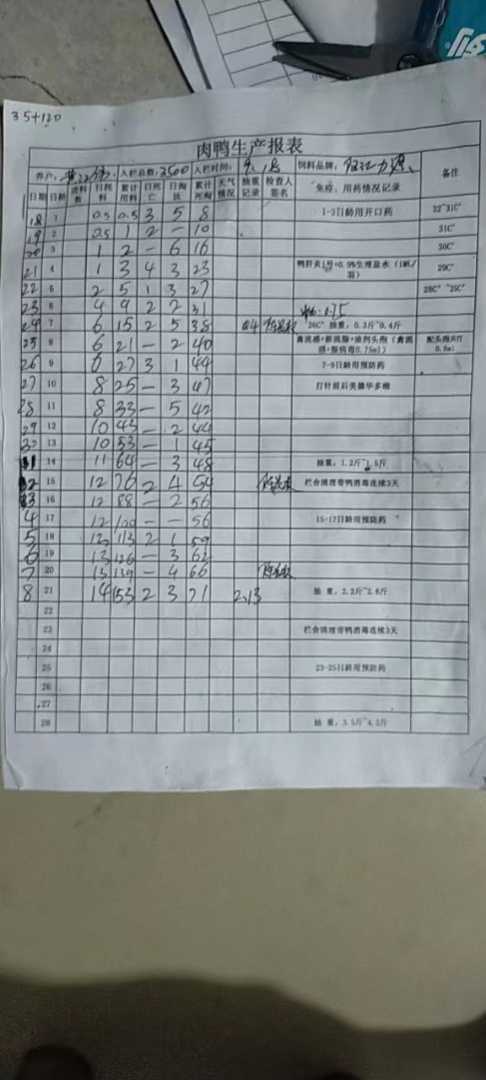 35+120
肉鸭生产报表
养户: 入栏总数:3500 入栏时间: 饲料品牌: 备注
日期 日龄 进料数 日耗料 累计用料 日死亡 日淘汰 累计死淘 天气情况 抽重记录 检查人签名 免疫、用药情况记录
18 1 0.5 0.5 3 5 8 1-3日龄用开口药 32~31C°
19 2 0.5 1 2 - 10 31C°
20 3 1 2 - 6 16 30C°
21 4 1 3 4 3 23 鸭肝炎1号+0.9%生理盐水(1瓶/ 29C°
22 5 2 5 1 3 27 28C° ~26C°
23 6 4 9 2 2 31
24 7 6 15 2 5 38 0.4 26C° 抽重:0.3斤~0.4斤
25 8 6 21 - 2 40
26 9 6 27 3 1 44 7-9日龄用预防药
27 10 8 25 - 3 47 打针前后美德华多维
28 11 8 33 - 5 42
29 12 10 43 - 2 44
30 13 10 53 - 1 45
31 14 11 64 - 3 48 抽重:1.2斤~1.5斤
15 12 76 2 4 54 栏舍清理带鸭消毒连续3天
16 12 88 - 2 56
4 17 12 100 - - 56 15-17日龄用预防药
5 18 12 113 2 1 59
6 19 13 126 - 3 62
7 20 13 139 - 4 66
8 21 14 153 2 3 71 2.13 抽 重:2.2斤~2.6斤
22
23 栏舍清理带鸭消毒连续3天
24
25 23-25日龄用预防药
26
27
28 抽 重:3.5斤~4.2斤